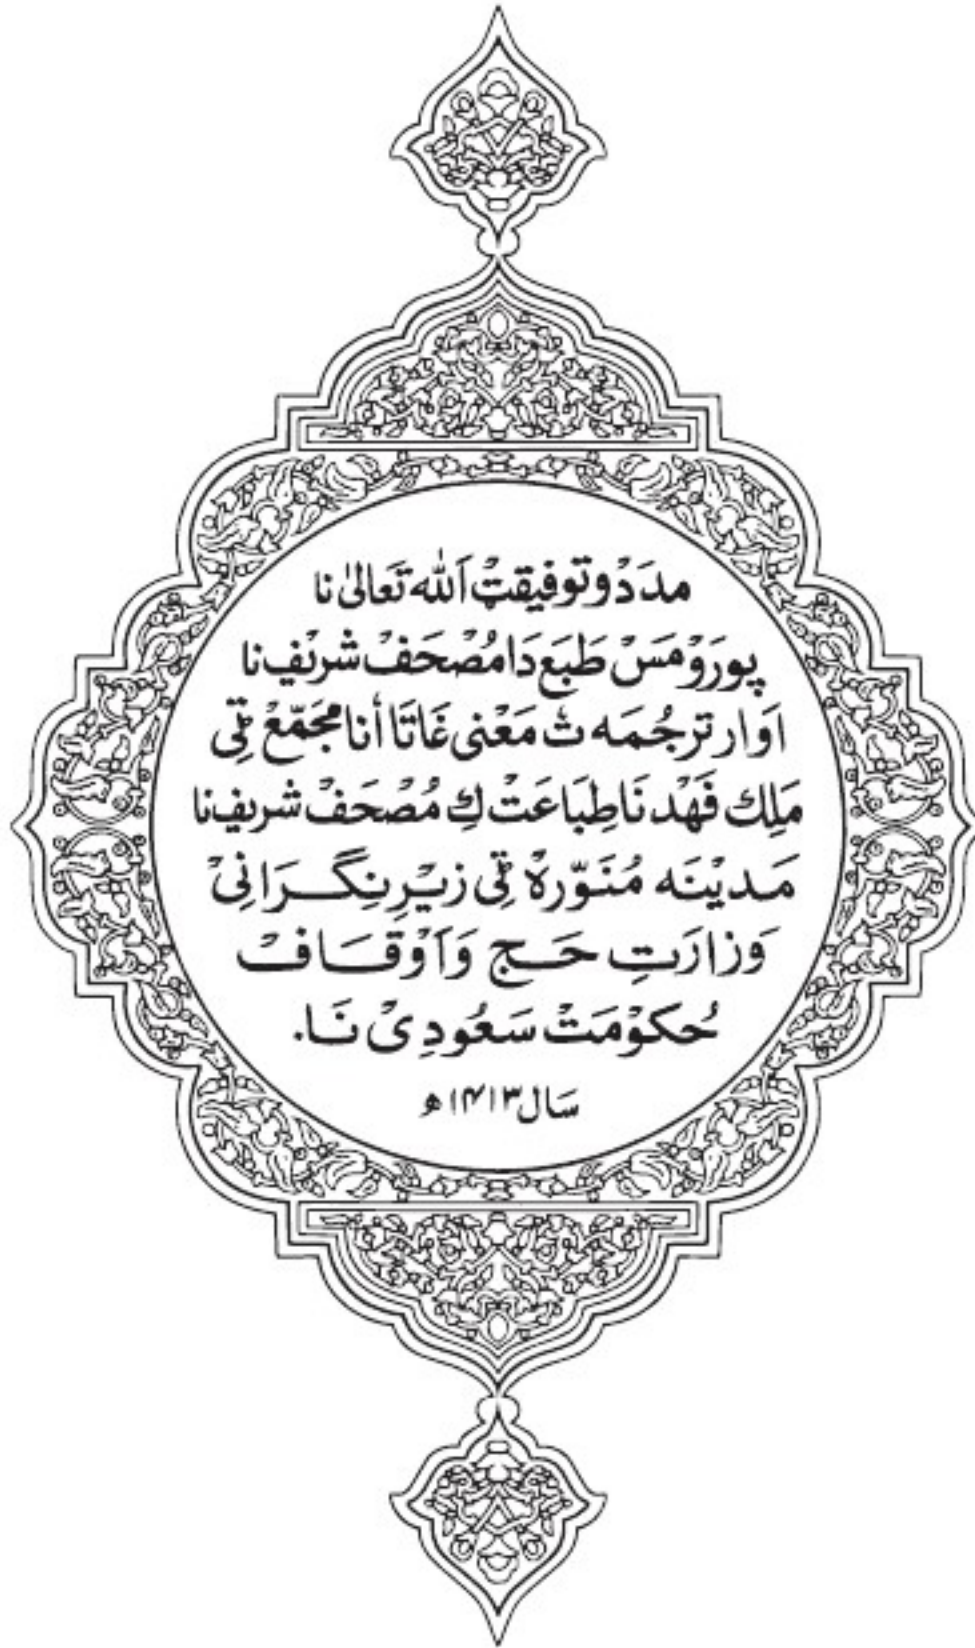 مدَدْ وتوفیقتْ اَللہ تَعَالیٰ نا
پورَوْ مَسْ طَبَع دَا مُصْحَفْ شریْفِ نا
اَوار ترجُمَہ ثْ مَعْنی غَاتَا أنا مجَمّعْ ٹی
مَلِك فَهْد نَا طِبَاعَتْ كِ مُصْحَفْ شریفِ نا
مَدیْنَہ مُنَوّرهْ ٹی زیْرِ نِگَرَانِیْ
وَزارَتِ حَج وَاَوْقَافْ
حُکوْمَتْ سَعُودِیْ نَا.
سَال ۱۴۱۳ ھ